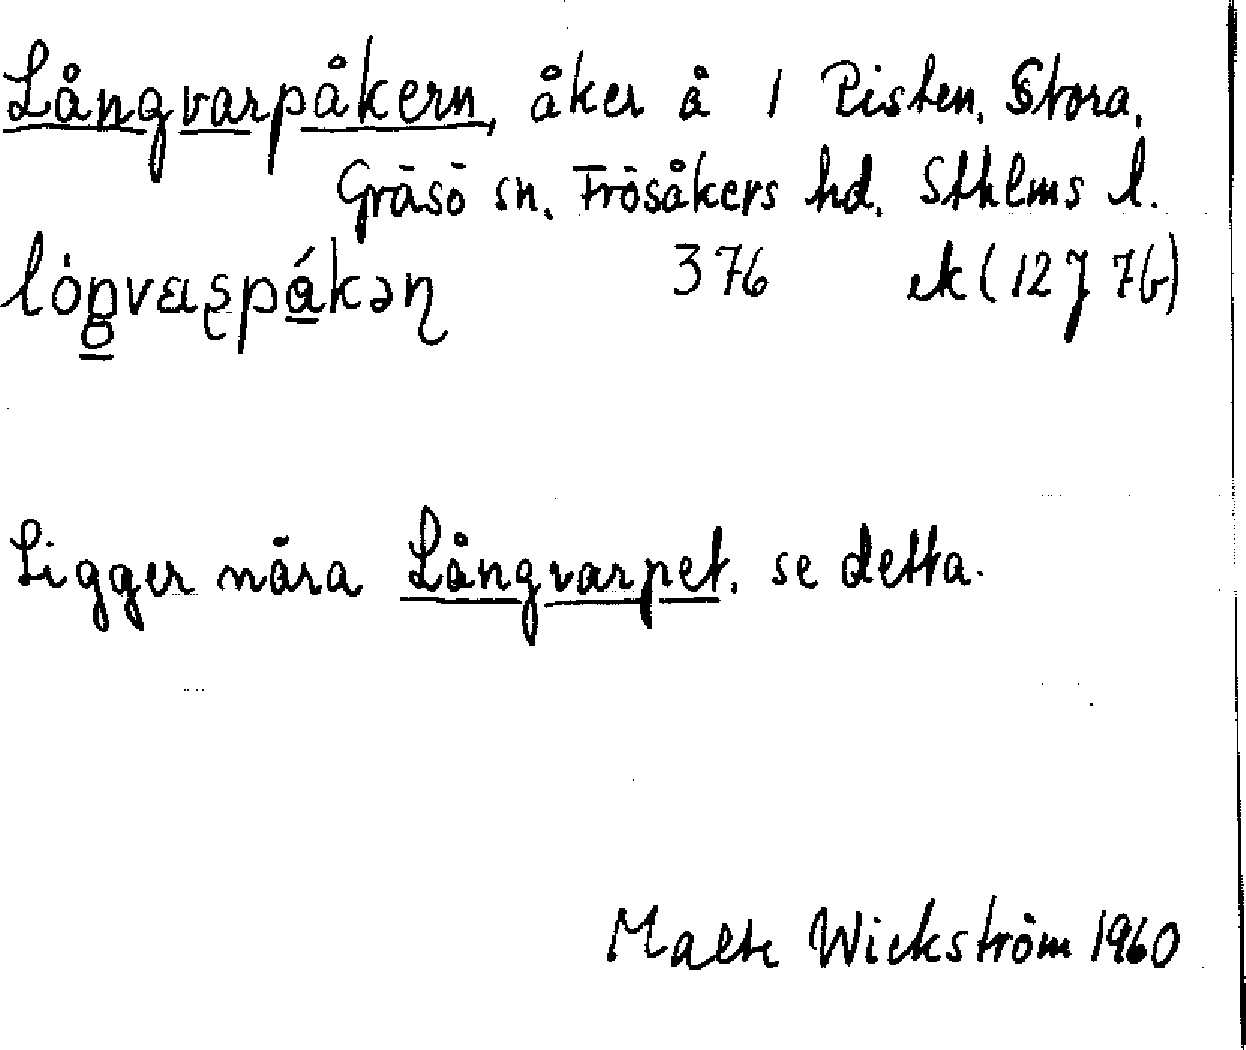 Långvarpåkern, åker å 1 Risten, Stora,
Gräsö sn, Frösåkers hd, Sthlms l.
376 ek (12 J 7b)
Ligger nära Långvarpet, se detta.
Malte Wickström 1960